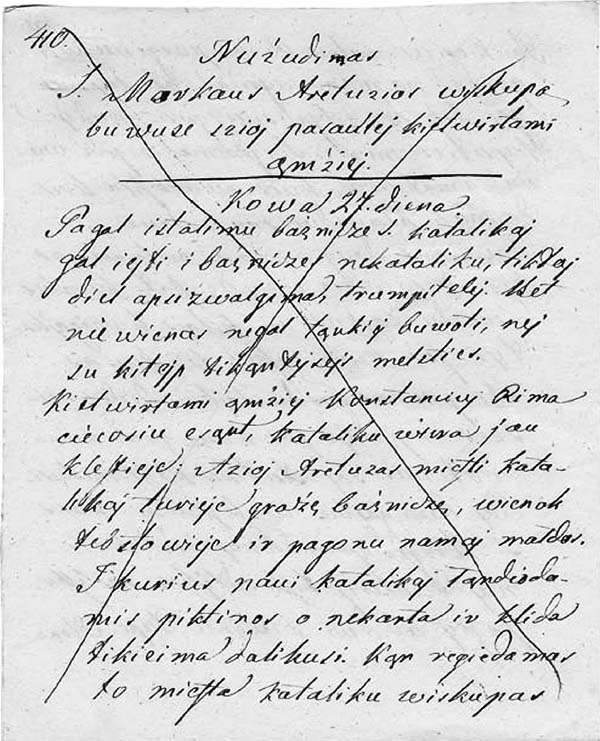 410.
Nużudimas
S. Morkaus Aretuzios wiskupa,
buwuse szioj pasaulej kietwirtami
ąmżiej.
Kowa 27. diena
Pagal istatimu bażnicze S. katalikaj
gal iejti i bażnicze nekataliku, tiktaj
diel apsiżwalgima, trumpitelej. Bet
nie wienas negal tąnkiej buwoti, nej
su kitajp tikąntejsejs melsties.
Kietwirtami ąmżiej Konstanciuj Rima
ciecosiu esąnt, kataliku wiera jau
klestieje; Azioj Aretuzas miesti kata-
likaj turieje grażę bażniczę, wienok
teb stowieje ir pagonu namaj maldos.
I kurius nauj katalikaj ląndioda-
mis piktinos o nekarta ir klida
tikieima dalikusi. Kąn regiedamas
to miesta kataliku wiskupas